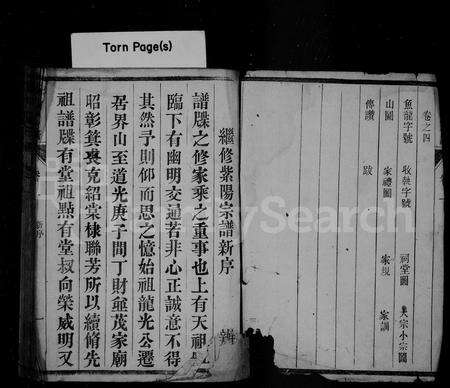 Torn Page(s)
卷之四
魚龍字號 收族字號 祠堂圖 大宗小宗圖
山圖 家禮圖 家規 家訓
傳讚 跋
繼修紫陽宗譜新序
譜牒之修家乘之重事也上有天祖
臨下有幽明交通若非心正誠意不得
其然予則仰而思之憶始祖龍光公遷
居界山至道光庚子間丁財並茂家廟
昭彰箕裘克紹棠棣聯芳所以續脩先
祖譜牒有堂祖點有堂叔向榮威明又